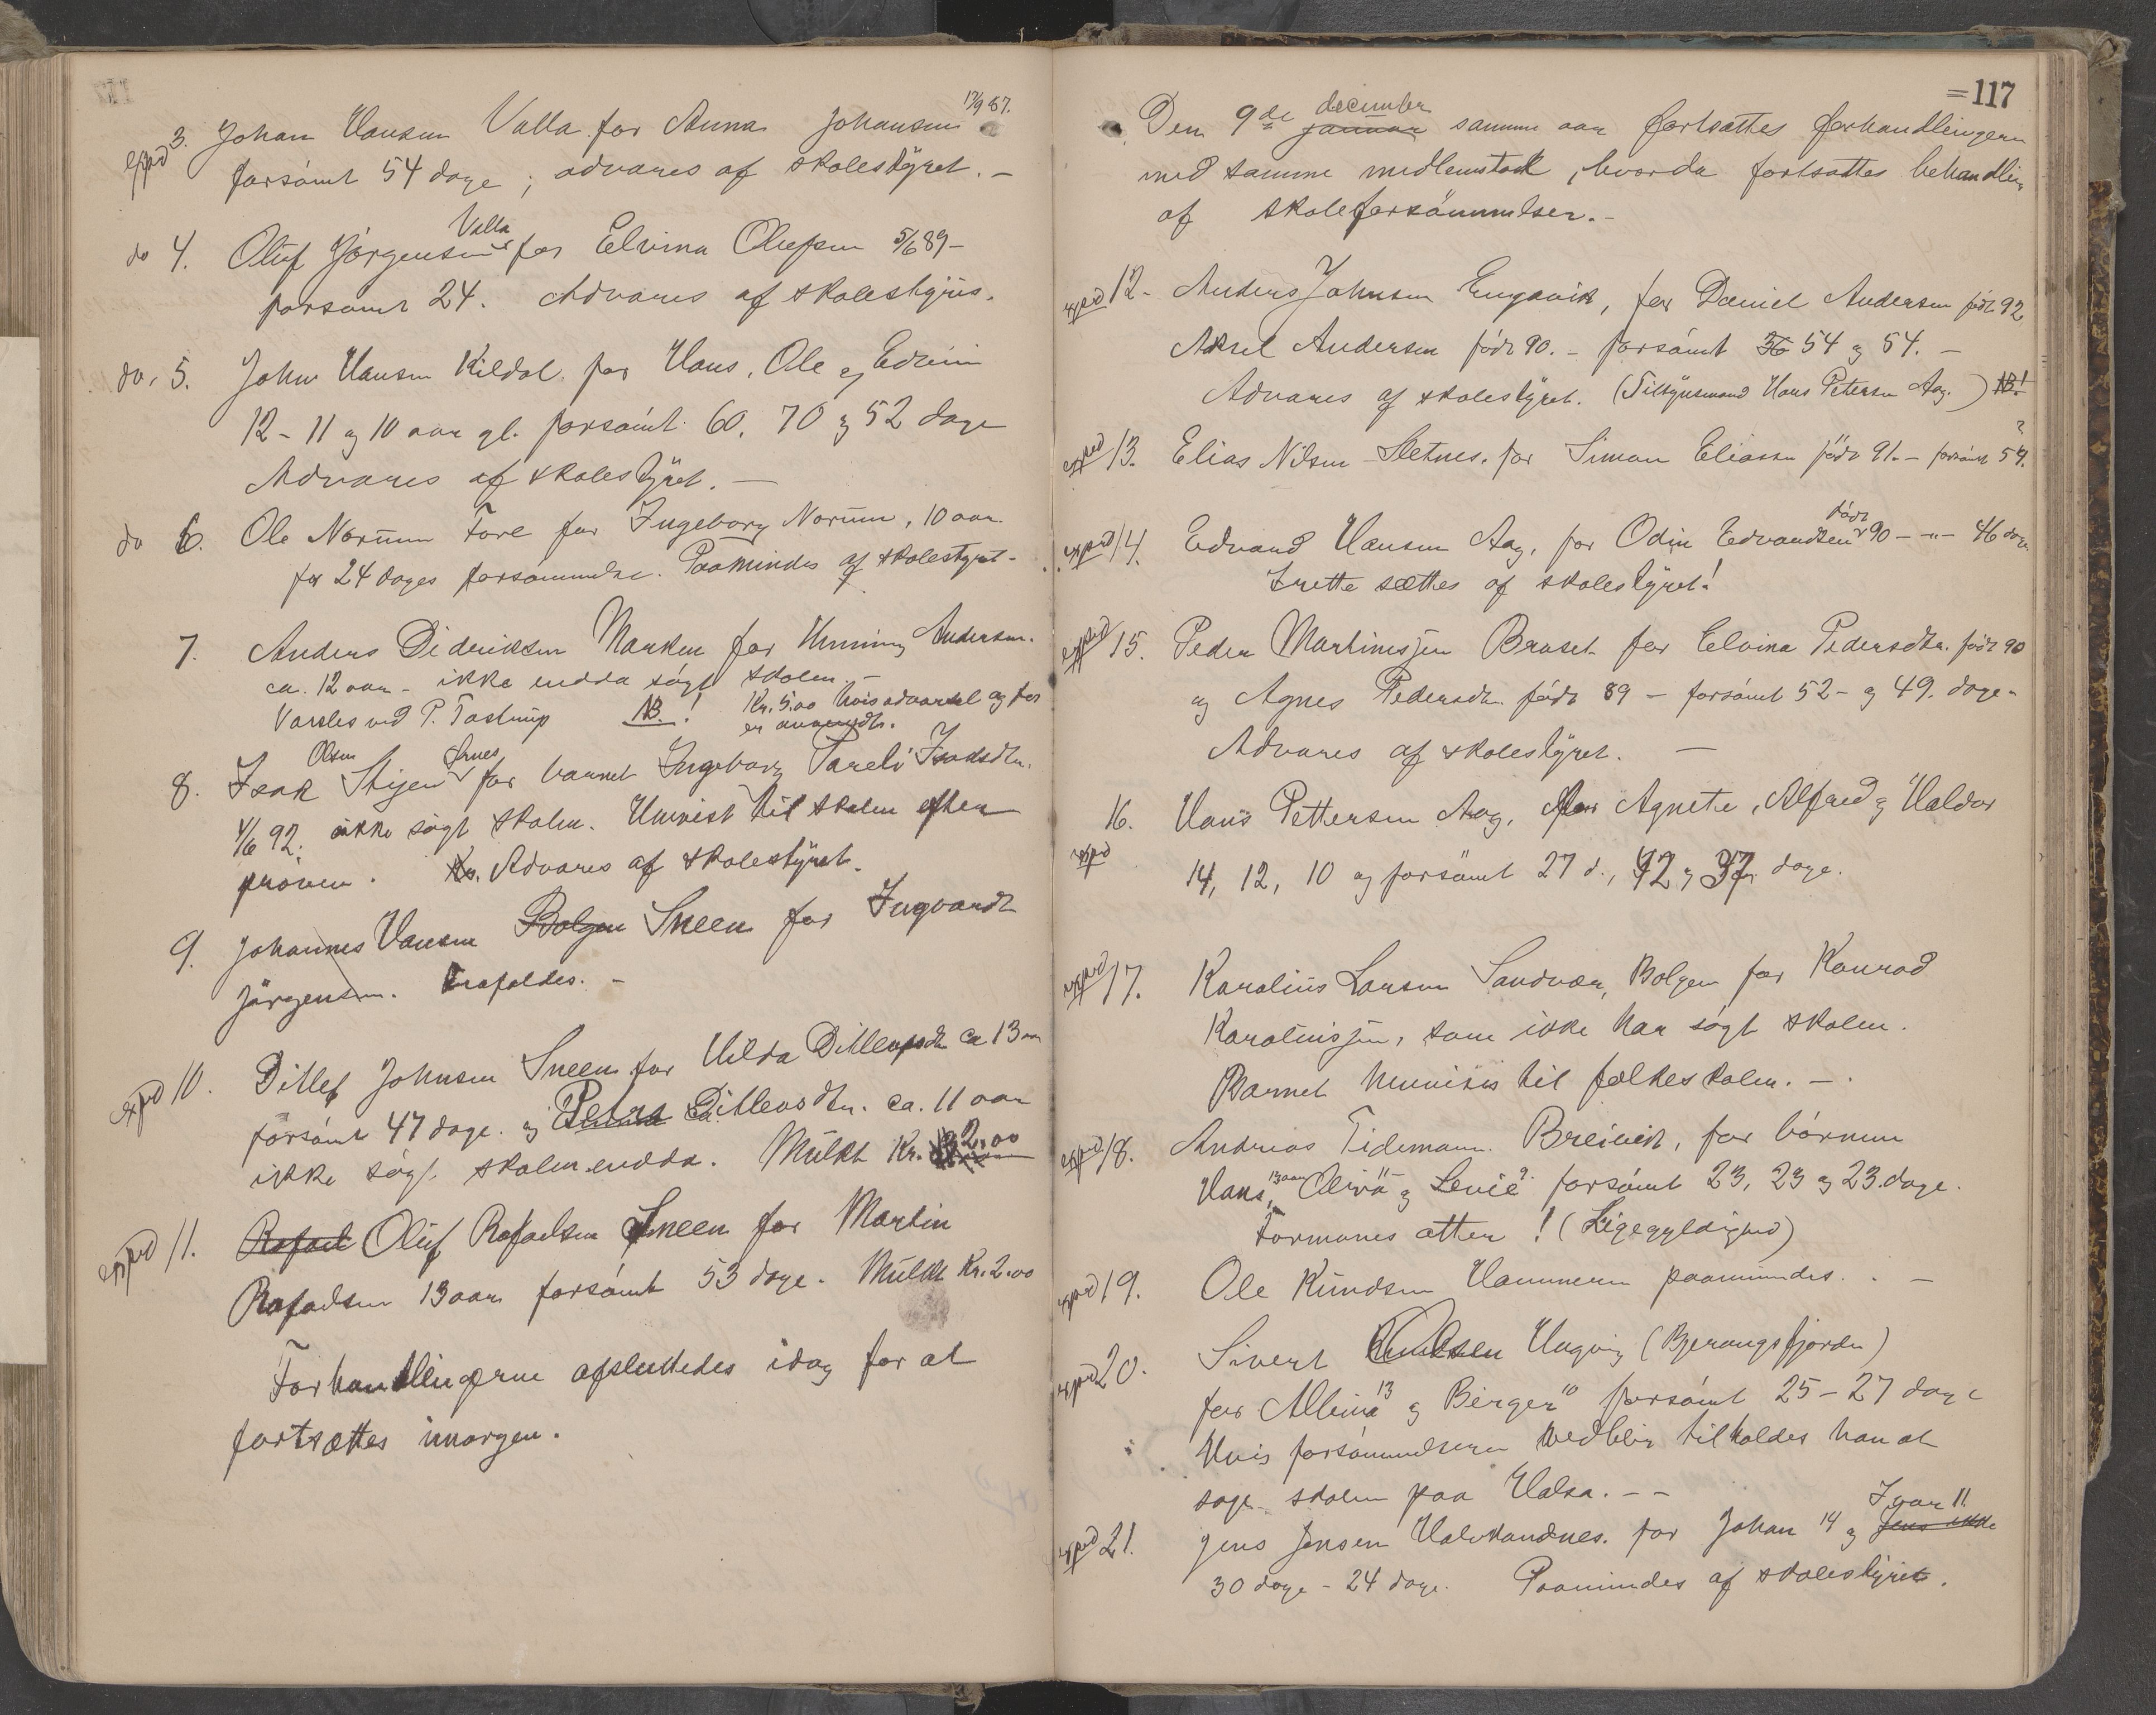 17/9 87.
expd 3. Johan Hansen Valla for Anna Johansen
forsømt 54 dage; advares af skolestyret. –
Valla
do 4. Oluf Jørgensen for Elvina Olufsen 5/6 89 –
forsømt 24. Advares af skolestyret.
do. 5. John Hansen Kildal for Hans, Ole og Edvin
12 - 11 og 10 aar gl. forsømt 60, 70 og 52 dage
Advares af skolestyret. –
do 6. Ole Norum Fore for Ingeborg Norum, 10 aar.
for 24 dages forsømmelse. Paamindes af skolestyret. –
7. Anders Dideriksen Marken for Henning Andersen.
ca. 12 aar – ikke endda søgt skolen. –
Varsles ved P. Tostrup NB.! Kr. 5.00 hvis advarsel og før
er anvendt.
Olsen Ørnes
8. Isak Stien for barnet Ingeborg Pareli Isaksdtr.
4/6 92. ikke søgt skolen. Henvist til skolen efter
prøven. Kr. Advares af skolestyret.
9. Johannes Hansen Bolgen Sneen for Ingvardt
Jørgensen. Frafaldes. –
expd 10. Ditlef Johnsen Sneen for Hilda Ditlevsdtr ca 13 aar
forsømt 47 dage. og Petra Ditlevsdtr. ca. 11 aar
ikke søgt skolen endda. Mulkt Kr. 2.00
expd 11. Rafael Oluf Rafaelsen Sneen for Martin
Rafaelsen 13 aar forsømt 53 dage. Mulkt Kr. 2.00
Forhandlingerne afsluttedes idag for at
fortsættes imorgen.
=117
december
Den 9de januar samme aar fortsattes forhandlingerne
med samme medlemstal, hvorda fortsattes behandling
af skoleforsømmelser. –
expd 12. Anders Johnsen Engavik, for Daniel Andersen født 92
Aksel Andersen født 90. – forsømt 36 54 og 54. –
Advares af skolestyret. (Tilsynsmand Hans Petersen Aag.) NB!
?
expd 13. Elias Nilsen Sletnes. for Simon Eliassen født 91. – forsømt 54.
født
expd 14. Edvard Hansen Aag, for Odin Edvardsen 90 – " – 46 dage
Irette sættes af skolestyret!
expd 15. Peder Martinussen Braset for Elvina Pedersdtr. født 90
og Agnes Pedersdtr. født 89 – forsømt 52 – og 49. dage –
Advares af skolestyret. –
16. Hans Pettersen Aag, for Agnete, Alfred og Haldor
expd 14, 12, 10 og forsømt 27 d., 42 og 37 dage.
expd 17. Karolius Larsen Sandvær, Bolgen for Konrad
Karoliussen, som ikke har søgt skolen.
Barnet henvises til folkeskolen. – .
expd 18. Andreas Tidemann Breivik, for børnene
Hans, 13 aar Oliva 11 og Levie 9. forsømt 23, 23 og 23 dage.
Formanes atter! (Ligegyldighed)
expd 19. Ole Knudsen Hammeren paamindes. . –
expd 20. Sivert Knudsen Haugvig (Bjerangsfjorden)
for Albina 13 og Birger 10 forsømt 25 – 27 dage
Hvis forsømmelserne vedbliver tilholdes han at
søge skolen paa Halsa. – –
Ivar 11.
expd 21. Jens Jensen Halvhandnes. for Johan 14 og Jens ikke
30 dage – 24 dage. Paamindes af skolestyret.